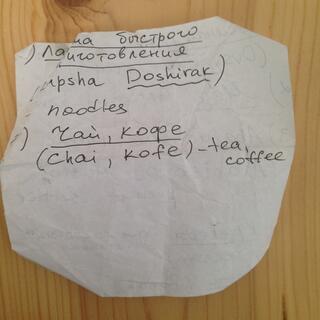 ма быстрого
) Лаиготовления
apsha Doshirak)
noodles
) Чай, кофе
(Chai, kofe) - tea,
coffee